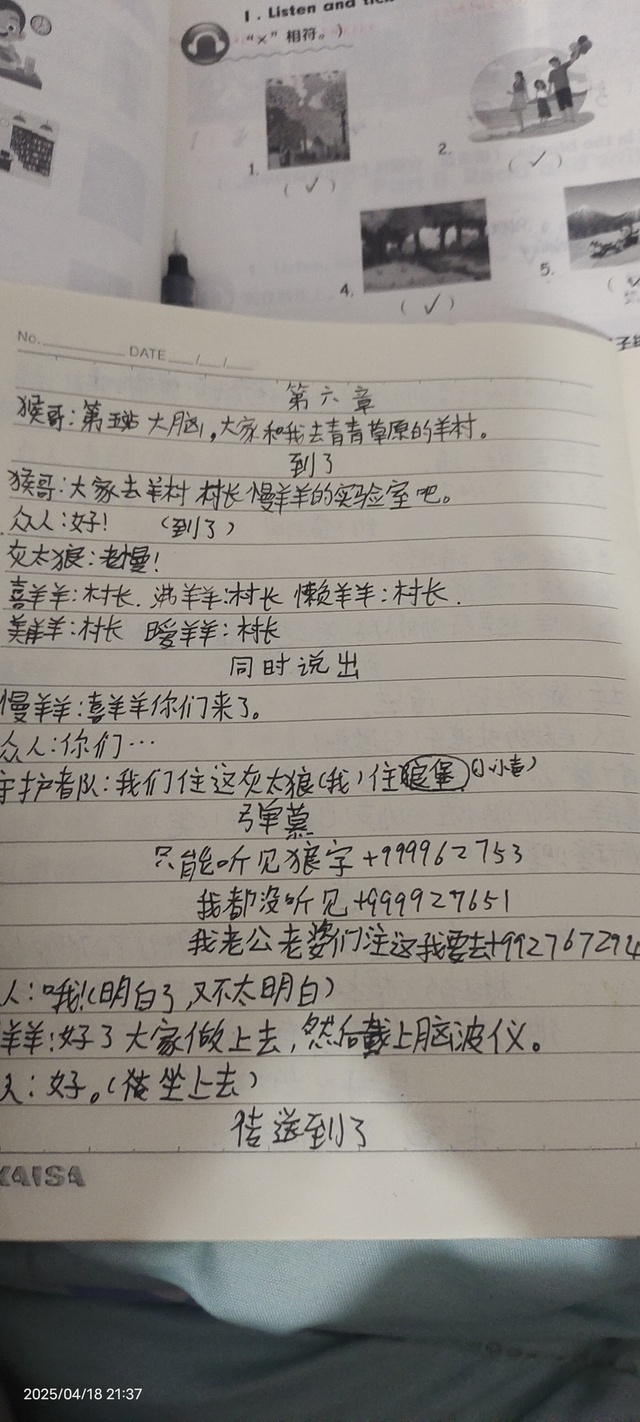 1. Listen and
“×”相符。)
1.
(✓)
2.
(✓)
4.
(✓)
5.
No. DATE / /
第六章
猴哥:第五站 大脑,大家和我去青青草原的羊村。
到了
猴哥:大家去羊村 村长慢羊羊的实验室吧。
众人:好! (到了)
灰太狼:老慢!
喜羊羊:村长. 沸羊羊:村长 懒羊羊:村长.
美羊羊:村长 暖羊羊:村长
同时说出
慢羊羊:喜羊羊你们来了。
众人:你们…
守护者队:我们住这灰太狼(我)住狼堡(小声)
弹幕
只能听见狼字+999962753
我都没听见+999927651
我老公老婆们注这我要去+992767294
人:哦!(明白了,又不太明白)
羊羊:好了大家做上去,然后戴上脑波仪。
人:好。(坐上去)
传送到了
KAISA
2025/04/18 21:37